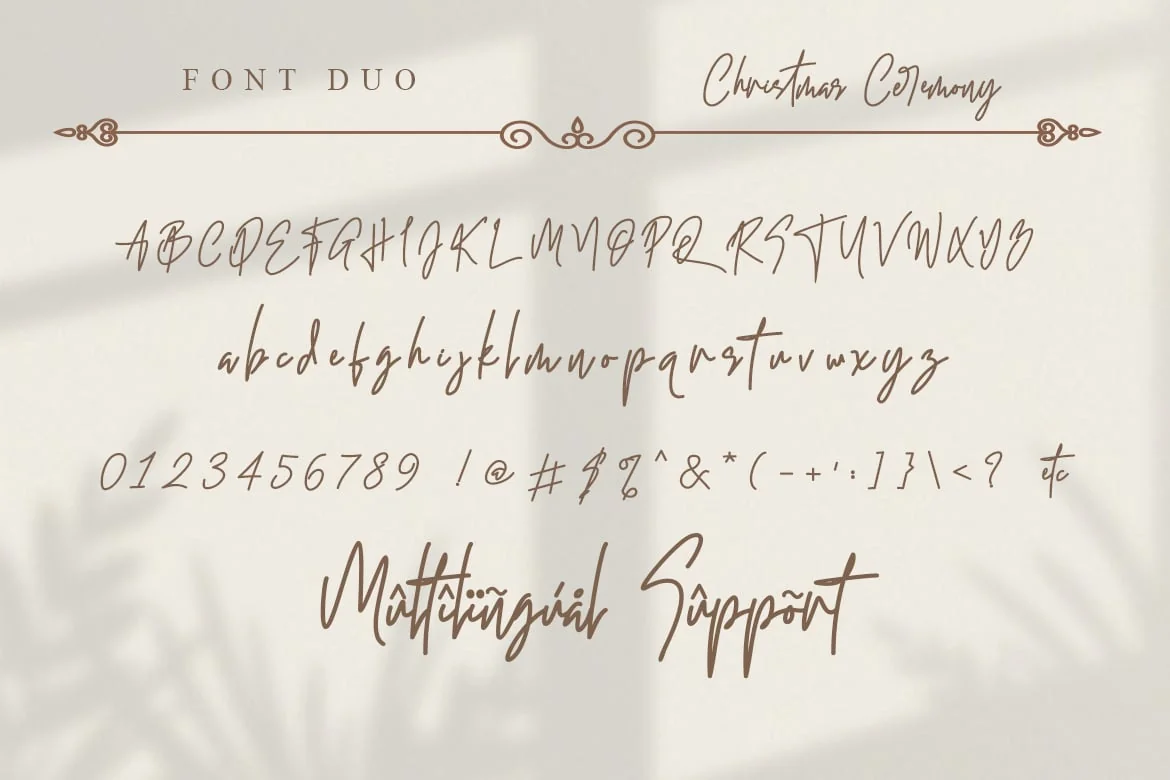 FONT DUO Christmas Ceremony
ABCDEFGHIJKLMNOPQRSTUVWXYZ
abcdefghijklmnopqrstuvwxyz
0123456789 !@#$%^&*(-+':]}\<? etc
Mûltîlïñgúål Sûppõrt